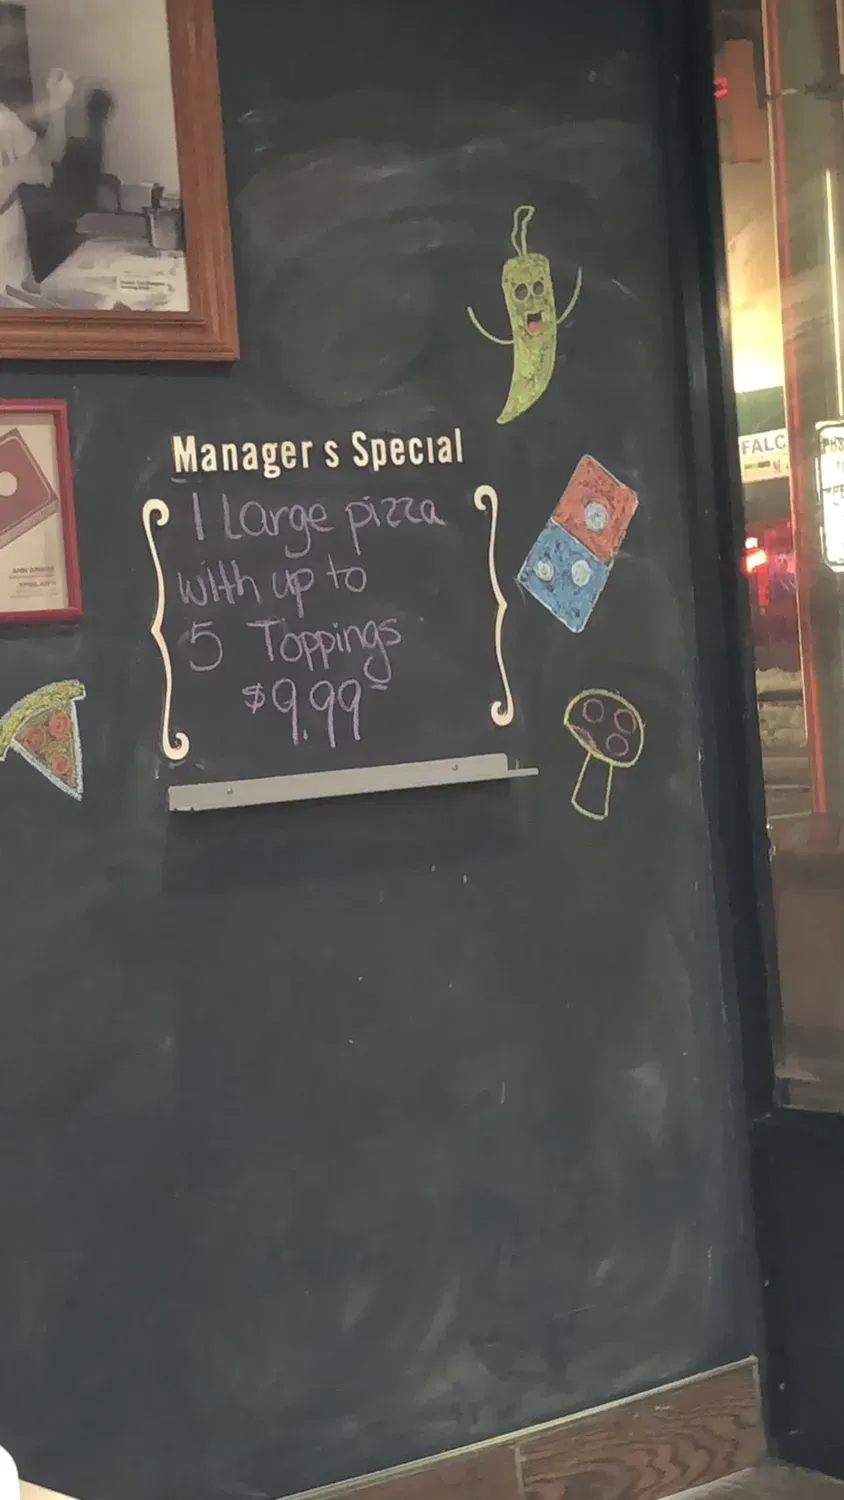 Manager s Special
1 Large pizza
with up to
5 Toppings
$9.99
FALC
ANN ARBOR